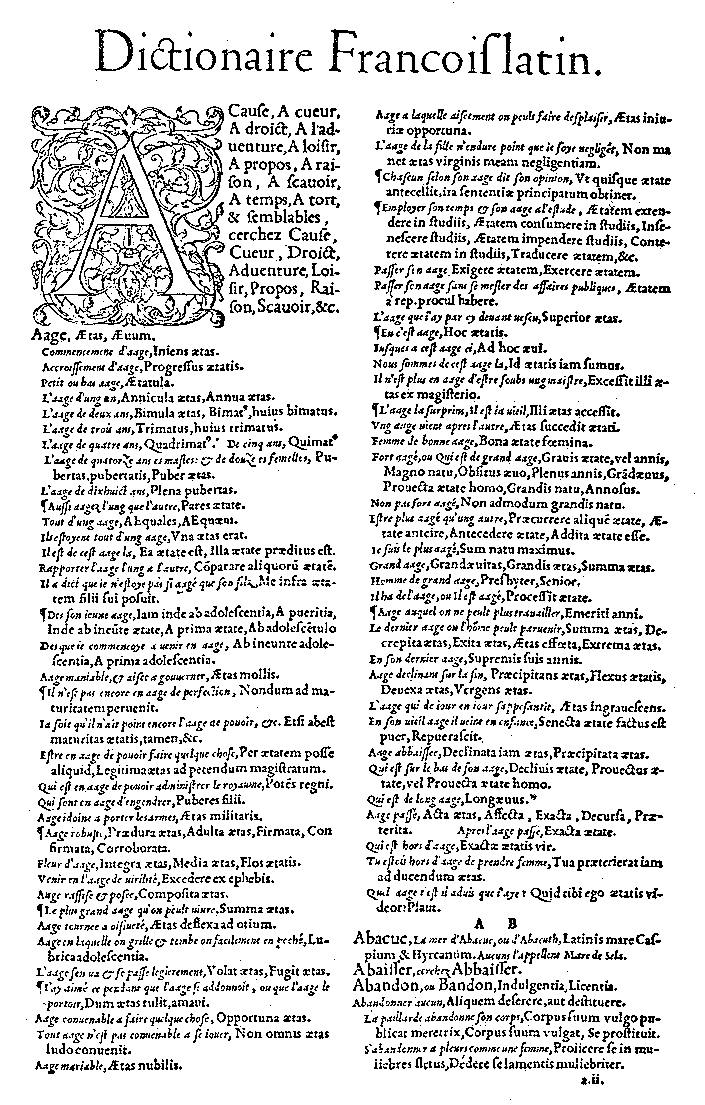 Dictionaire Francoislatin.
A
Cause, A cueur,
A droict, A l'ad-
uenture, A loisir,
A propos, A rai-
son, A scauoir,
A temps, A tort,
& semblables,
cerchez Cause,
Cueur, Droict,
Aduenture, Loi-
sir, Propos, Rai-
son, Scauoir, &c.
Aage, Ætas, Æuum.
Commencement d'aage, Iniens ætas.
Accroissement d'aage, Progressus ætatis.
Petit ou bas aage, Ætatula.
L'aage d'ung an, Annicula ætas, Annua ætas.
L'aage de deux ans, Bimula ætas, Bimatus, huius bimatus.
L'aage de trois ans, Trimatus, huius trimatus.
L'aage de quatre ans, Quadrimatus. De cinq ans, Quimatus
L'aage de quatorze ans es masles: & de douze es femelles, Pu-
bertas, pubertatis, Puber ætas.
L'aage de dixhuict ans, Plena pubertas.
¶Aussi aagez l'ung que l'autre, Pares ætate.
Tout d'ung aage, Aequales, AEquæui.
Ils estoyent tout d'ung aage, Vna ætas erat.
Il est de cest aage la, Ea ætate est, Illa ætate præditus est.
Rapporter l'aage l'ung a l'autre, Cōparare aliquorū ætatē.
Il a dict que ie n'estoye pas si aagé que son filz, Me infra æta-
tem filii sui posuit.
¶Des son ieune aage, Iam inde ab adolescentia, A pueritia,
Inde ab ineūte ætate, A prima ætate, Ab adolescētulo
Des que ie commencoye a uenir en aage, Ab ineunte adole-
scentia, A prima adolescentia.
Aage maniable, & aisee a gouuerner, Ætas mollis.
¶Il n'est pas encore en aage de perfection, Nondum ad ma-
turitatem peruenit.
Ia soit qu'il n'ait point encore l'aage de pouoir, &c. Etsi abest
maturitas ætatis, tamen, &c.
Estre en aage de pouoir faire quelque chose, Per ætatem posse
aliquid, Legitima ætas ad petendum magistratum.
Qui est en aage de pouoir administrer le royaume, Potēs regni.
Qui sont en aage d'engendrer, Puberes filii.
Aage idoine a porter les armes, Ætas militaris.
¶Aage robuste, Prædura ætas, Adulta ætas, Firmata, Con
firmata, Corroborata.
Fleur d'aage, Integra ætas, Media ætas, Flos ætatis.
Venir en l'aage de uirilité, Excedere ex ephebis.
Aage rassise & posee, Composita ætas.
¶Le plus grand aage qu'on peult uiure, Summa ætas.
Aage tournee a oisiueté, Ætas deflexa ad otium.
Aage en laquelle on grille & tombe on facilement en peché, Lu-
brica adolescentia.
L'aage s'en ua & se passe legierement, Volat ætas, Fugit ætas.
¶I'ay aimé ce pendant que l'aage si addonnoit, ou que l'aage le
portoit, Dum ætas tulit, amaui.
Aage conuenable a faire quelque chose, Opportuna ætas.
Tout aage n'est pas conuenable a se iouer, Non omnis ætas
ludo conuenit.
Aage mariable, Ætas nubilis.
Aage a laquelle aiseement on peult faire desplaisir, Ætas iniu-
riæ opportuna.
L'aage de la fille n'endure point que ie soye negligēt, Non ma
net ætas virginis meam negligentiam.
¶Chascun selon son aage dit son opinion, Vt quisque ætate
antecellit, ita sententiæ principatum obtinet.
¶Employer son temps & son aage a l'estude, Ætatem exten-
dere in studiis, Ætatem consumere in studiis, Inse-
nescere studiis, Ætatem impendere studiis, Conte-
rere ætatem in studiis, Traducere ætatem, &c.
Passer son aage, Exigere ætatem, Exercere ætatem.
Passer son aage sans se mesler des affaires publiques, Ætatem
a rep. procul habere.
L'aage que i'ay par cy deuant uescu, Superior ætas.
¶En c'est aage, Hoc ætatis.
Iusques a cest aage ci, Ad hoc æui.
Nous sommes de cest aage la, Id ætatis iam sumus.
Il n'est plus en aage d'estre soubs ung maistre, Excessit illi æ-
tas ex magisterio.
¶L'aage la surprins, il est ia uieil, Illi ætas accessit.
Vng aage uient apres l'autre, Ætas succedit ætati.
Femme de bonne aage, Bona ætate fœmina.
Fort aagé, ou Qui est de grand aage, Grauis ætate, vel annis,
Magno natu, Obsitus æuo, Plenus annis, Grādæuus,
Prouecta ætate homo, Grandis natu, Annosus.
Non pas fort aagé, Non admodum grandis natu.
Estre plus aagé qu'ung autre, Præcurrere aliquē ætate, Æ-
tate anteire, Antecedere ætate, Addita ætate esse.
Ie suis le plus aagé, Sum natu maximus.
Grand aage, Grandæuitas, Grandis ætas, Summa ætas.
Homme de grand aage, Presbyter, Senior.
Il ha de l'aage, ou il est aagé, Processit ætate.
¶Aage auquel on ne peult plus trauailler, Emeriti anni.
Le dernier aage ou l'hōme peult paruenir, Summa ætas, De-
crepita ætas, Exita ætas, Ætas effœta, Extrema ætas.
En son dernier aage, Supremis suis annis.
Aage declinant sur la fin, Præcipitans ætas, Flexus ætatis,
Deuexa ætas, Vergens ætas.
L'aage qui de iour en iour s'appesantit, Ætas ingrauescens.
En son uieil aage il uient en enfance, Senecta ætate factus est
puer, Repuerascit.
Aage abbaisser, Declinata iam ætas, Præcipitata ætas.
Qui est sur le bas de son aage, Decliuis ætate, Prouectus æ-
tate, vel Prouecta ætate homo.
Qui est de long aage, Longæuus.
Aage passé, Acta ætas, Affecta, Exacta, Decursa, Præ-
terita. Apres l'aage passé, Exacta ætate.
Qui est hors d'aage, Exactæ ætatis vir.
Tu estois hors d'aage de prendre femme, Tua præterierat iam
ad ducendum ætas.
Quel aage t'est il aduis que i'aye? Quid tibi ego ætatis vi-
deor? Plaut.
A B
Abacuc, La mer d'Abacuc, ou d'Abacuth, Latinis mare Cas-
pium & Hyrcanum. Aucuns l'appellent Mare de Sala.
Abaisser, cerchez Abbaisser.
Abandon, ou Bandon, Indulgentia, Licentia.
Abandonner aucun, Aliquem deserere, aut destituere.
La paillarde abandonne son corps, Corpus suum vulgo pu-
blicat meretrix, Corpus suum vulgat, Se prostituit.
S'abandonner a pleurs comme une femme, Proiicere se in mu-
liebres fletus, Dedere se lamentis muliebriter.
a.ii.